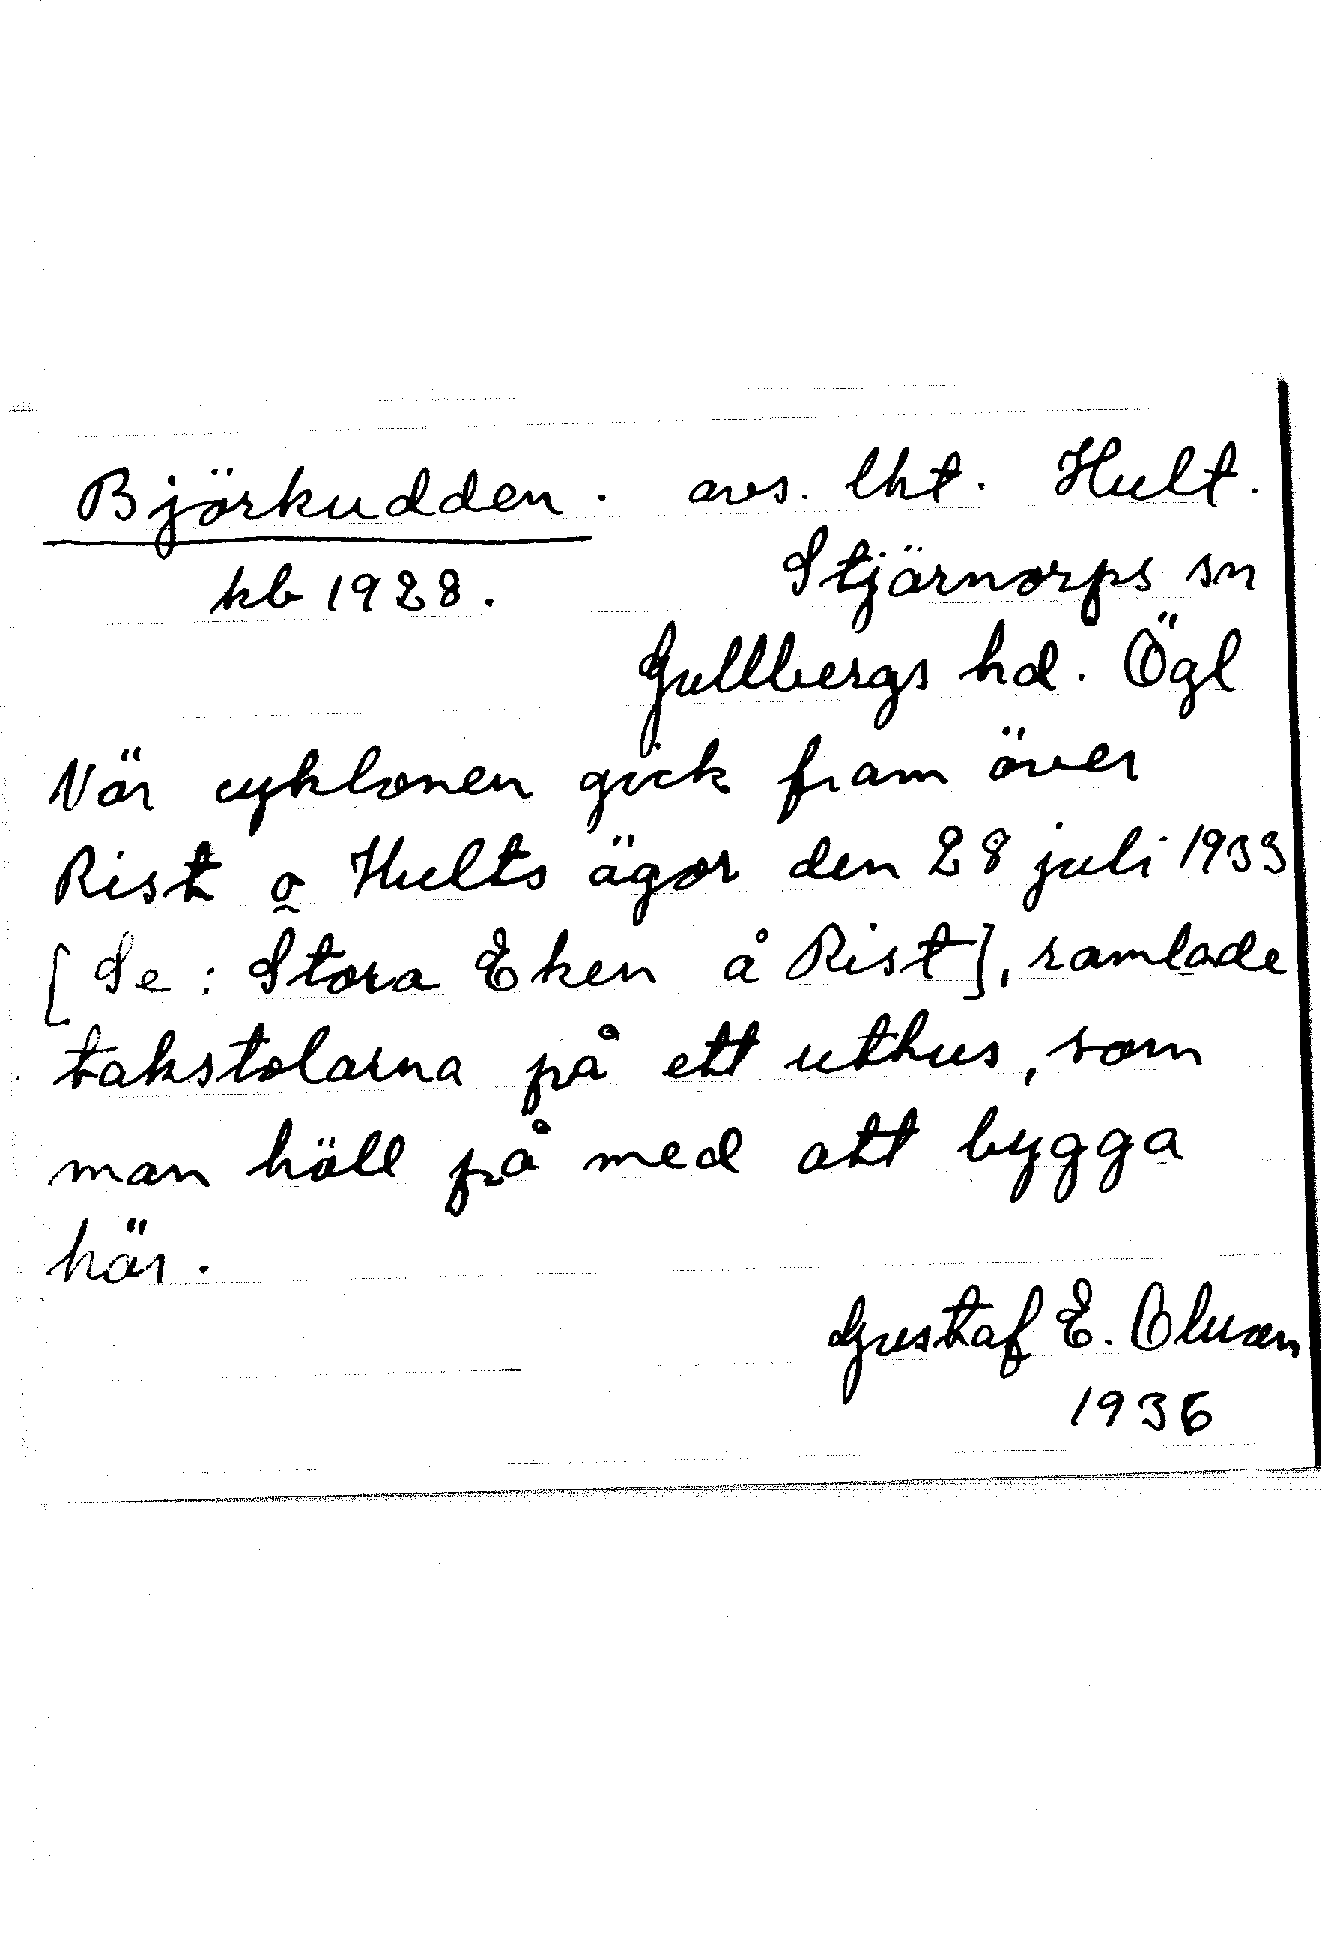 Björkudden. avs. lht. Hult.
kb 1928. Stjärnorps sn
Gullbergs hd. Ögl
När cyklonen gick fram över
Rist o Hults ägor den 28 juli 1933
[Se: Stora Eken å Rist], ramlade
takstolarna på ett uthus, som
man höll på med att bygga
här.
Gustaf E. Olsson
1936